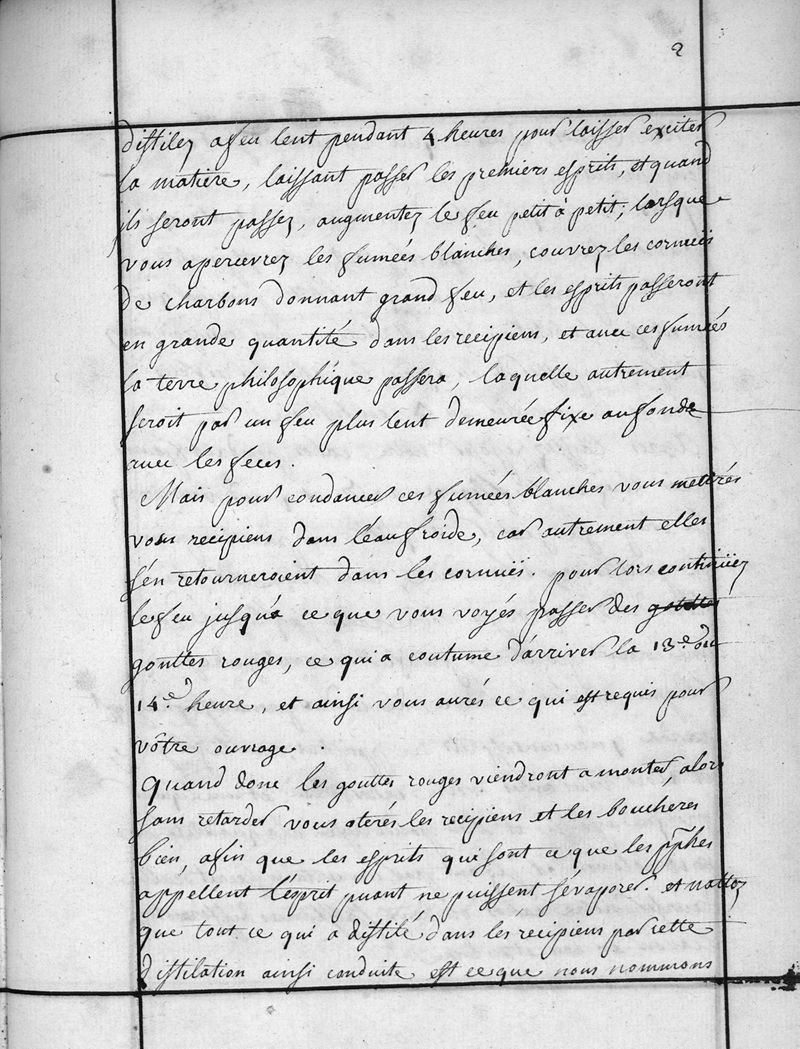 2
distilez a feu lent pendant 4 heures pour laisser exciter
la matiere, laissant passer les premiers esprits, et quand
ils seront passez, augmentez le feu petit à petit; lorsque
vous apercevrez les fumées blanches, couvrez les cornuës
de charbons donnant grand feu, et les esprits passeront
en grande quantité dans les recipiens, et avec ces fumées
la terre philosophique passera, laquelle autrement
seroit par un feu plus lent demeurée fixe au fonds
avec les feces.
Mais pour condancer ces fumées blanches vous metterés
vos recipiens dans l'éau froide, car autrement elles
s'en retourneroient dans les cornuës. pour lors continüez
le feu jusqu'a ce que vous voyés passer des gouttes
gouttes rouges, ce qui a coutume d'arriver la 13.e ou
14.e heure, et ainsi vous aurés ce qui est requis pour
vôtre ouvrage.
Quand donc les gouttes rouges viendront a monter, alors
sans retarder vous oterés les recipiens et les boucherés
bien, afin que les esprits qui sont ce que les pphes
appellent l'esprit puant ne puissent s'évaporer. et nottez
que tout ce qui a distilé dans les recipiens par cette
distilation ainsi conduite est ce que nous nommons